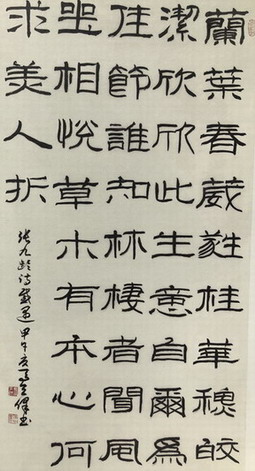 蘭葉春葳蕤桂華穐皎
潔欣欣此生意自爾為
佳節誰知林棲者聞風
坐相悅草木有本心何
求美人折
張九齡詩感遇甲午夏書